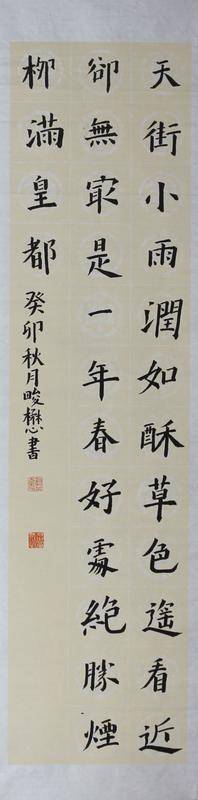 天街小雨潤如酥草色遥看近
卻無冣是一年春好處絕勝煙
柳滿皇都
癸卯秋月畯懋書